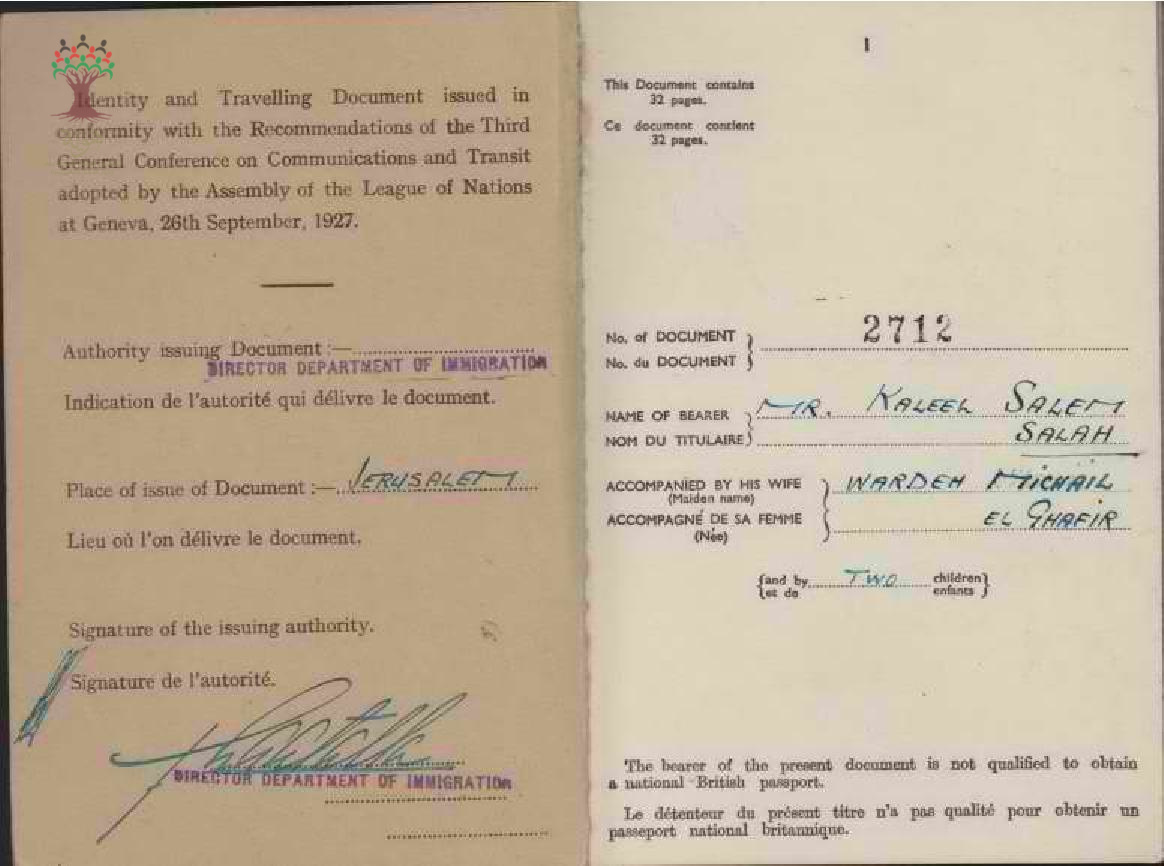 Identity and Travelling Document issued in
conformity with the Recommendations of the Third
General Conference on Communications and Transit
adopted by the Assembly of the League of Nations
at Geneva, 26th September, 1927.
Authority issuing Document :—
DIRECTOR DEPARTMENT OF IMMIGRATION
Indication de l'autorité qui délivre le document.
Place of issue of Document :— JERUSALEM
Lieu où l'on délivre le document.
Signature of the issuing authority.
Signature de l'autorité.
DIRECTOR DEPARTMENT OF IMMIGRATION
1
This Document contains
32 pages.
Ce document contient
32 pages.
No. of DOCUMENT 2712
No. du DOCUMENT
NAME OF BEARER MR. KALEEL SALEM
NOM DU TITULAIRE SALAH
ACCOMPANIED BY HIS WIFE WARDEH MICHAIL
(Maiden name)
ACCOMPAGNÉ DE SA FEMME EL GHAFIR
(Née)
{and by TWO children}
{et de enfants}
The bearer of the present document is not qualified to obtain
a national British passport.
Le détenteur du présent titre n'a pas qualité pour obtenir un
passeport national britannique.